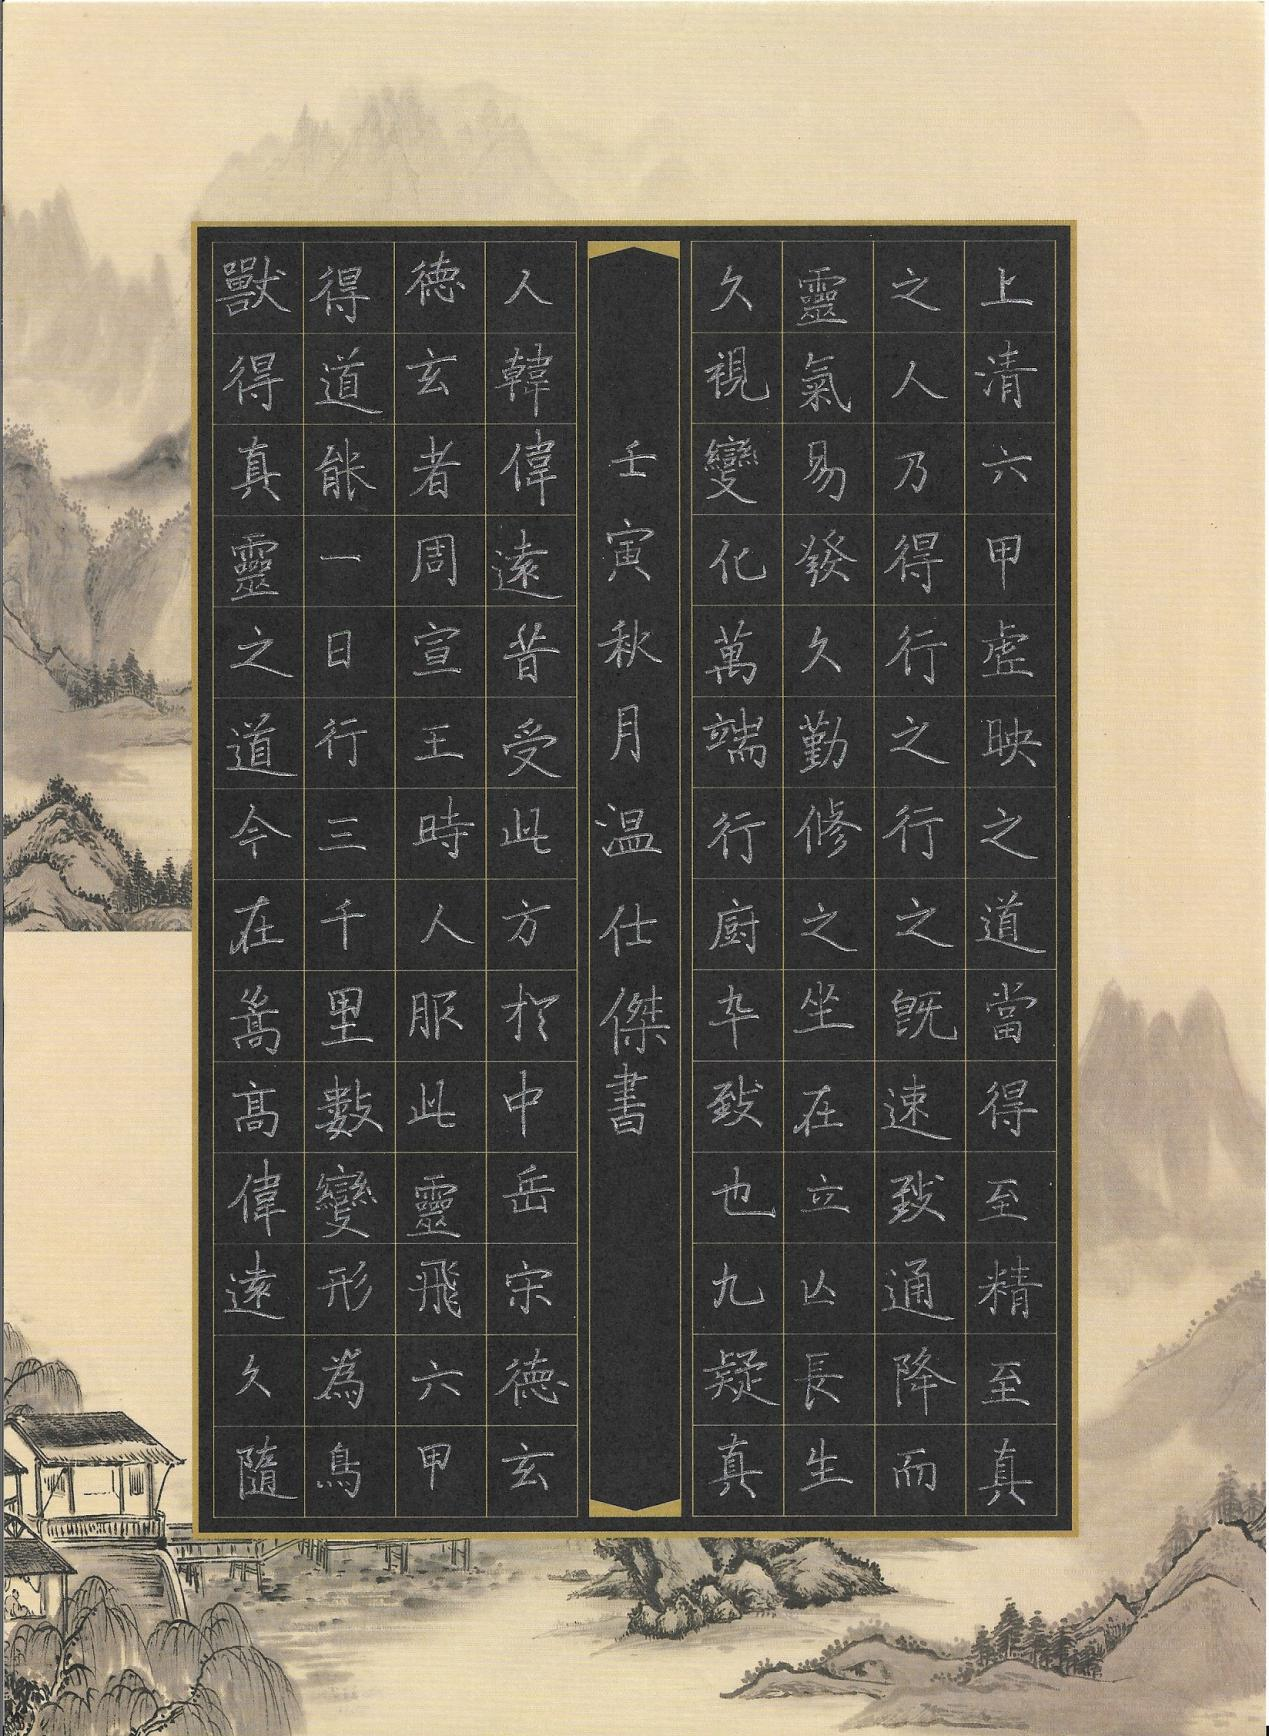 上清六甲虛映之道當得至精至真
之人乃得行之行之既速致通降而
靈氣易發久勤修之坐在立亾長生
久視變化萬端行廚卒致也九疑真
壬寅秋月温仕傑書
人韓偉遠昔受此方於中岳宋德玄
德玄者周宣王時人服此靈飛六甲
得道能一日行三千里數變形為鳥
獸得真靈之道今在嵩高偉遠久隨